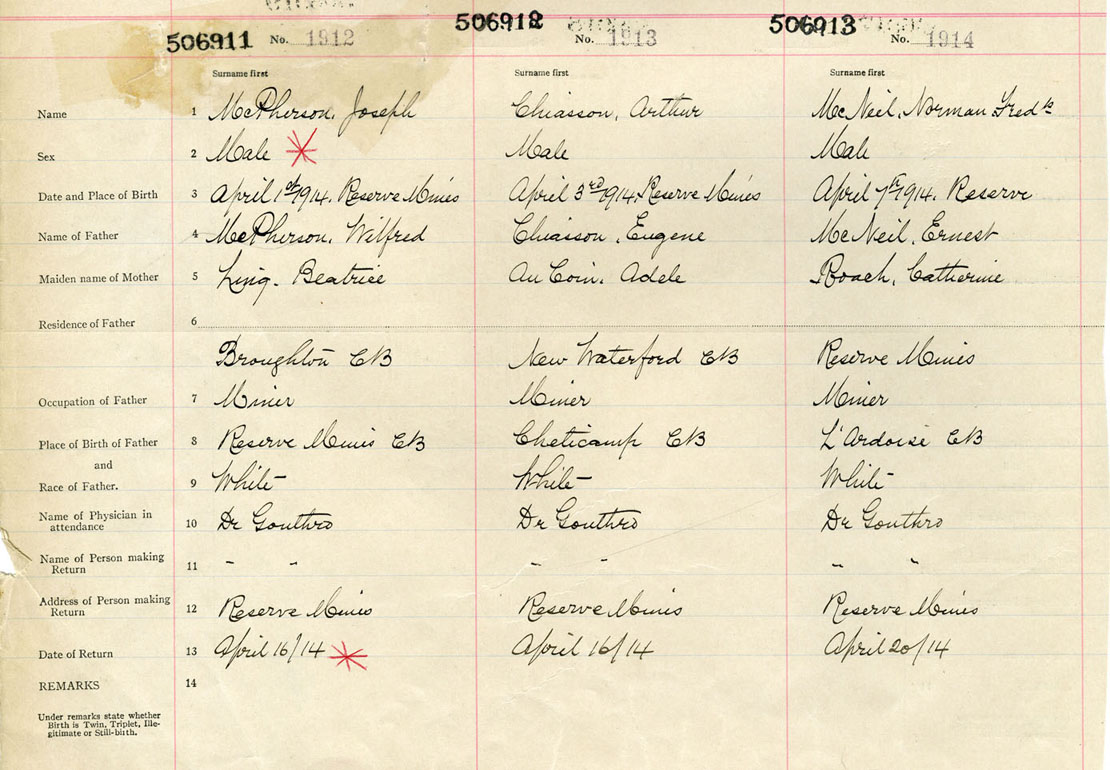 506911 No. 1912 506912 No. 1913 506913 No. 1914
Surname first Surname first Surname first
Name 1 McPherson, Joseph Chiasson, Arthur McNeil, Norman Fredk
Sex 2 Male Male Male
Date and Place of Birth 3 April 1st 1914. Reserve Mines April 3rd 1914. Reserve Mines April 7th 1914. Reserve
Name of Father 4 McPherson, Wilfred Chiasson, Eugene McNeil, Ernest
Maiden name of Mother 5 Ling. Beatrice Au Coin. Adele Roach, Catherine
Residence of Father 6
Broughton CB New Waterford CB Reserve Mines
Occupation of Father 7 Miner Miner Miner
Place of Birth of Father 8 Reserve Mines CB Cheticamp CB L'Ardoise CB
and
Race of Father. 9 White White White
Name of Physician in
attendance 10 Dr Gouthro Dr Gouthro Dr Gouthro
Name of Person making
Return 11 " " " " " "
Address of Person making
Return 12 Reserve Mines Reserve Mines Reserve Mines
Date of Return 13 April 16/14 April 16/14 April 20/14
REMARKS 14
Under remarks state whether
Birth is Twin, Triplet, Ille-
gitimate or Still-birth.